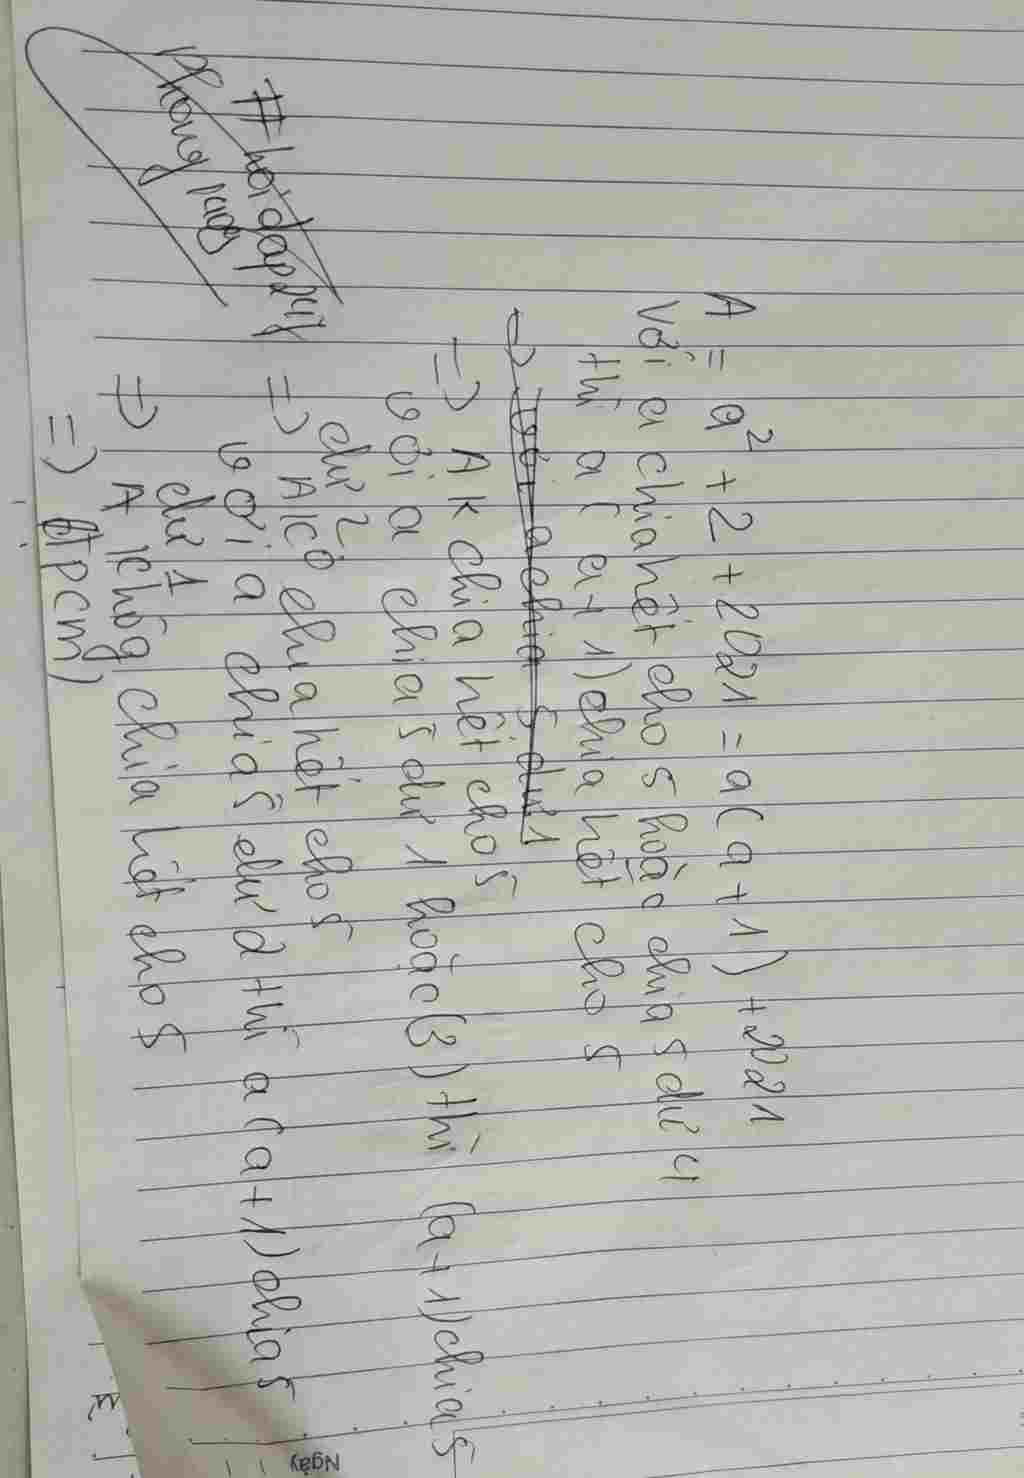 A = a² + 2 + 2021 = a(a+1) + 2021
Với a chia hết cho 5 hoặc chia 5 dư 4
thì a(a+1) chia hết cho 5
→ Với a chia 5 dư 1
=> A k chia hết cho 5
với a chia 5 dư 1 hoặc (3) thì (a+1) chia 5
dư 2
=> A kô chia hết cho 5
với a chia 5 dư 2 thì a(a+1) chia 5
dư 1
=> A khôg chia hết cho 5
=> (đpcm)
#hoidap247
Ngày